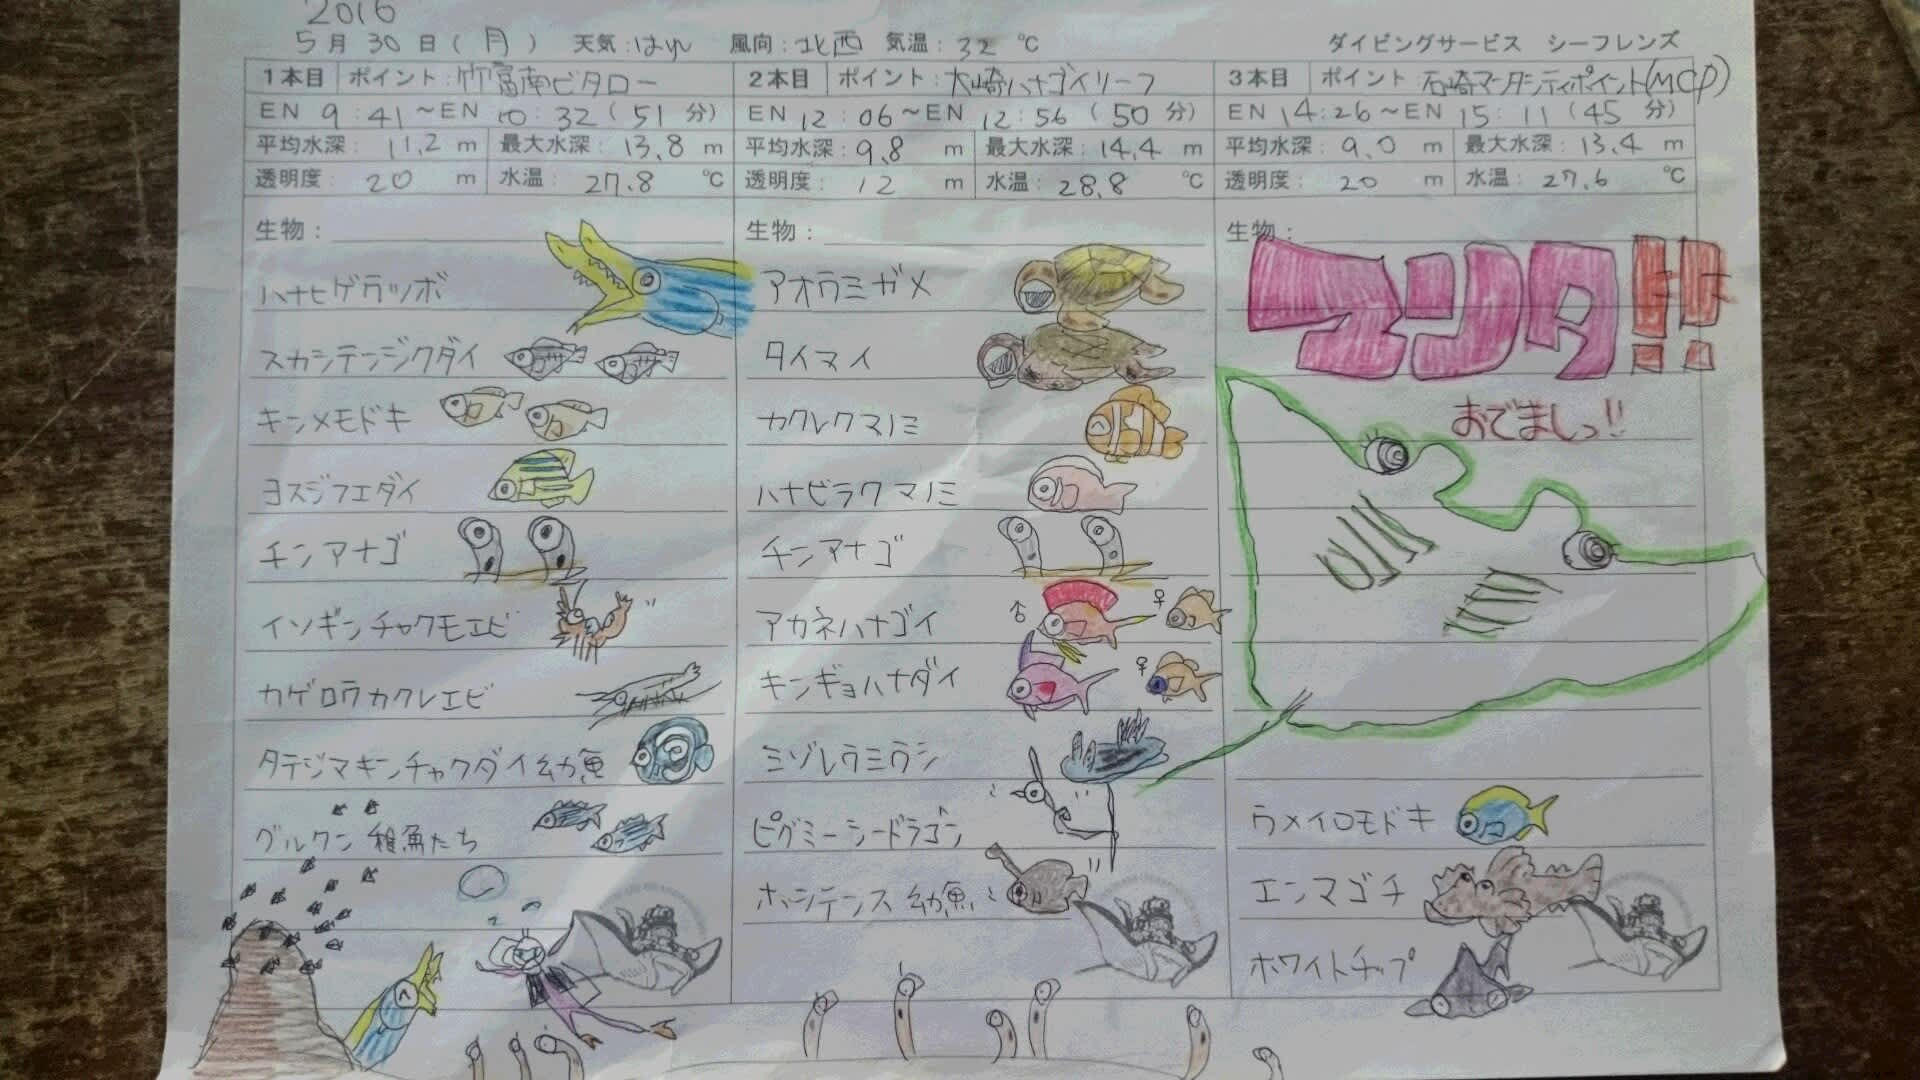 2016
5月30日(月) 天気:はれ 風向:北西 気温:32℃
ダイビングサービス シーフレンズ
1本目 ポイント:竹富南ビタロー
EN 9:41～EN 10:32(51分)
平均水深:11.2m 最大水深:13.8m
透明度:20m 水温:27.8℃
生物:
ハナヒゲウツボ
スカシテンジクダイ
キンメモドキ
ヨスジフエダイ
チンアナゴ
イソギンチャクモエビ
カゲロウカクレエビ
タテジマキンチャクダイ幼魚
グルクン稚魚たち
2本目 ポイント:大崎ハナゴイリーフ
EN 12:06～EN 12:56(50分)
平均水深:9.8m 最大水深:14.4m
透明度:12m 水温:28.8℃
生物:
アオウミガメ
タイマイ
カクレクマノミ
ハナビラクマノミ
チンアナゴ
アカネハナゴイ ♂ ♀
キンギョハナダイ ♀
ミゾレウミウシ
ピグミーシードラゴン
ホシテンス幼魚
3本目 ポイント:石崎マンタシティポイント(MCP)
EN 14:26～EN 15:11(45分)
平均水深:9.0m 最大水深:13.4m
透明度:20m 水温:27.6℃
生物:
マンタ!!
おでましっ!!
ウメイロモドキ
エンマゴチ
ホワイトチップ